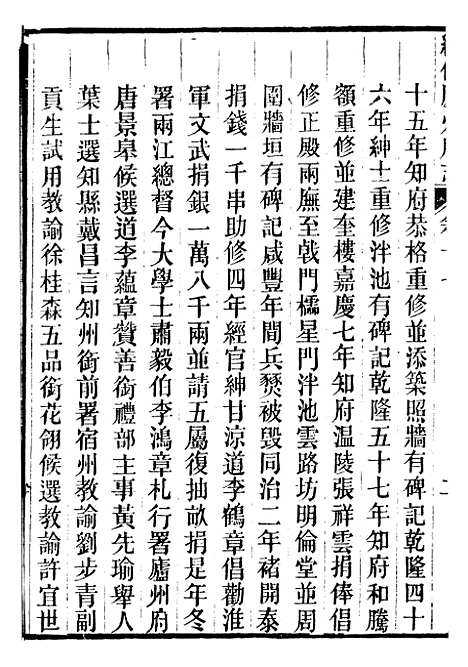 十五年知府恭格重修並添築照牆有碑記乾隆四十
六年紳士重修泮池有碑記乾隆五十七年知府和騰
額重修並建奎樓嘉慶七年知府温陵張祥雲捐俸倡
修正殿兩廡至戟門櫺星門泮池雲路坊明倫堂並周
圍牆垣有碑記咸豐年間兵燹被毀同治二年褚開泰
捐錢一千串助修四年經官紳甘涼道李鶴章倡勸淮
軍文武捐銀一萬八千兩並請五屬復抽畝捐是年冬
署兩江總督今大學士肅毅伯李鴻章札行署廬州府
唐景皋候選道李藴章贊善銜禮部主事黃先瑜舉人
葉士選知縣戴昌言知州銜前署宿州教諭劉步青副
貢生試用教諭徐桂森五品銜花翎候選教諭許宜世